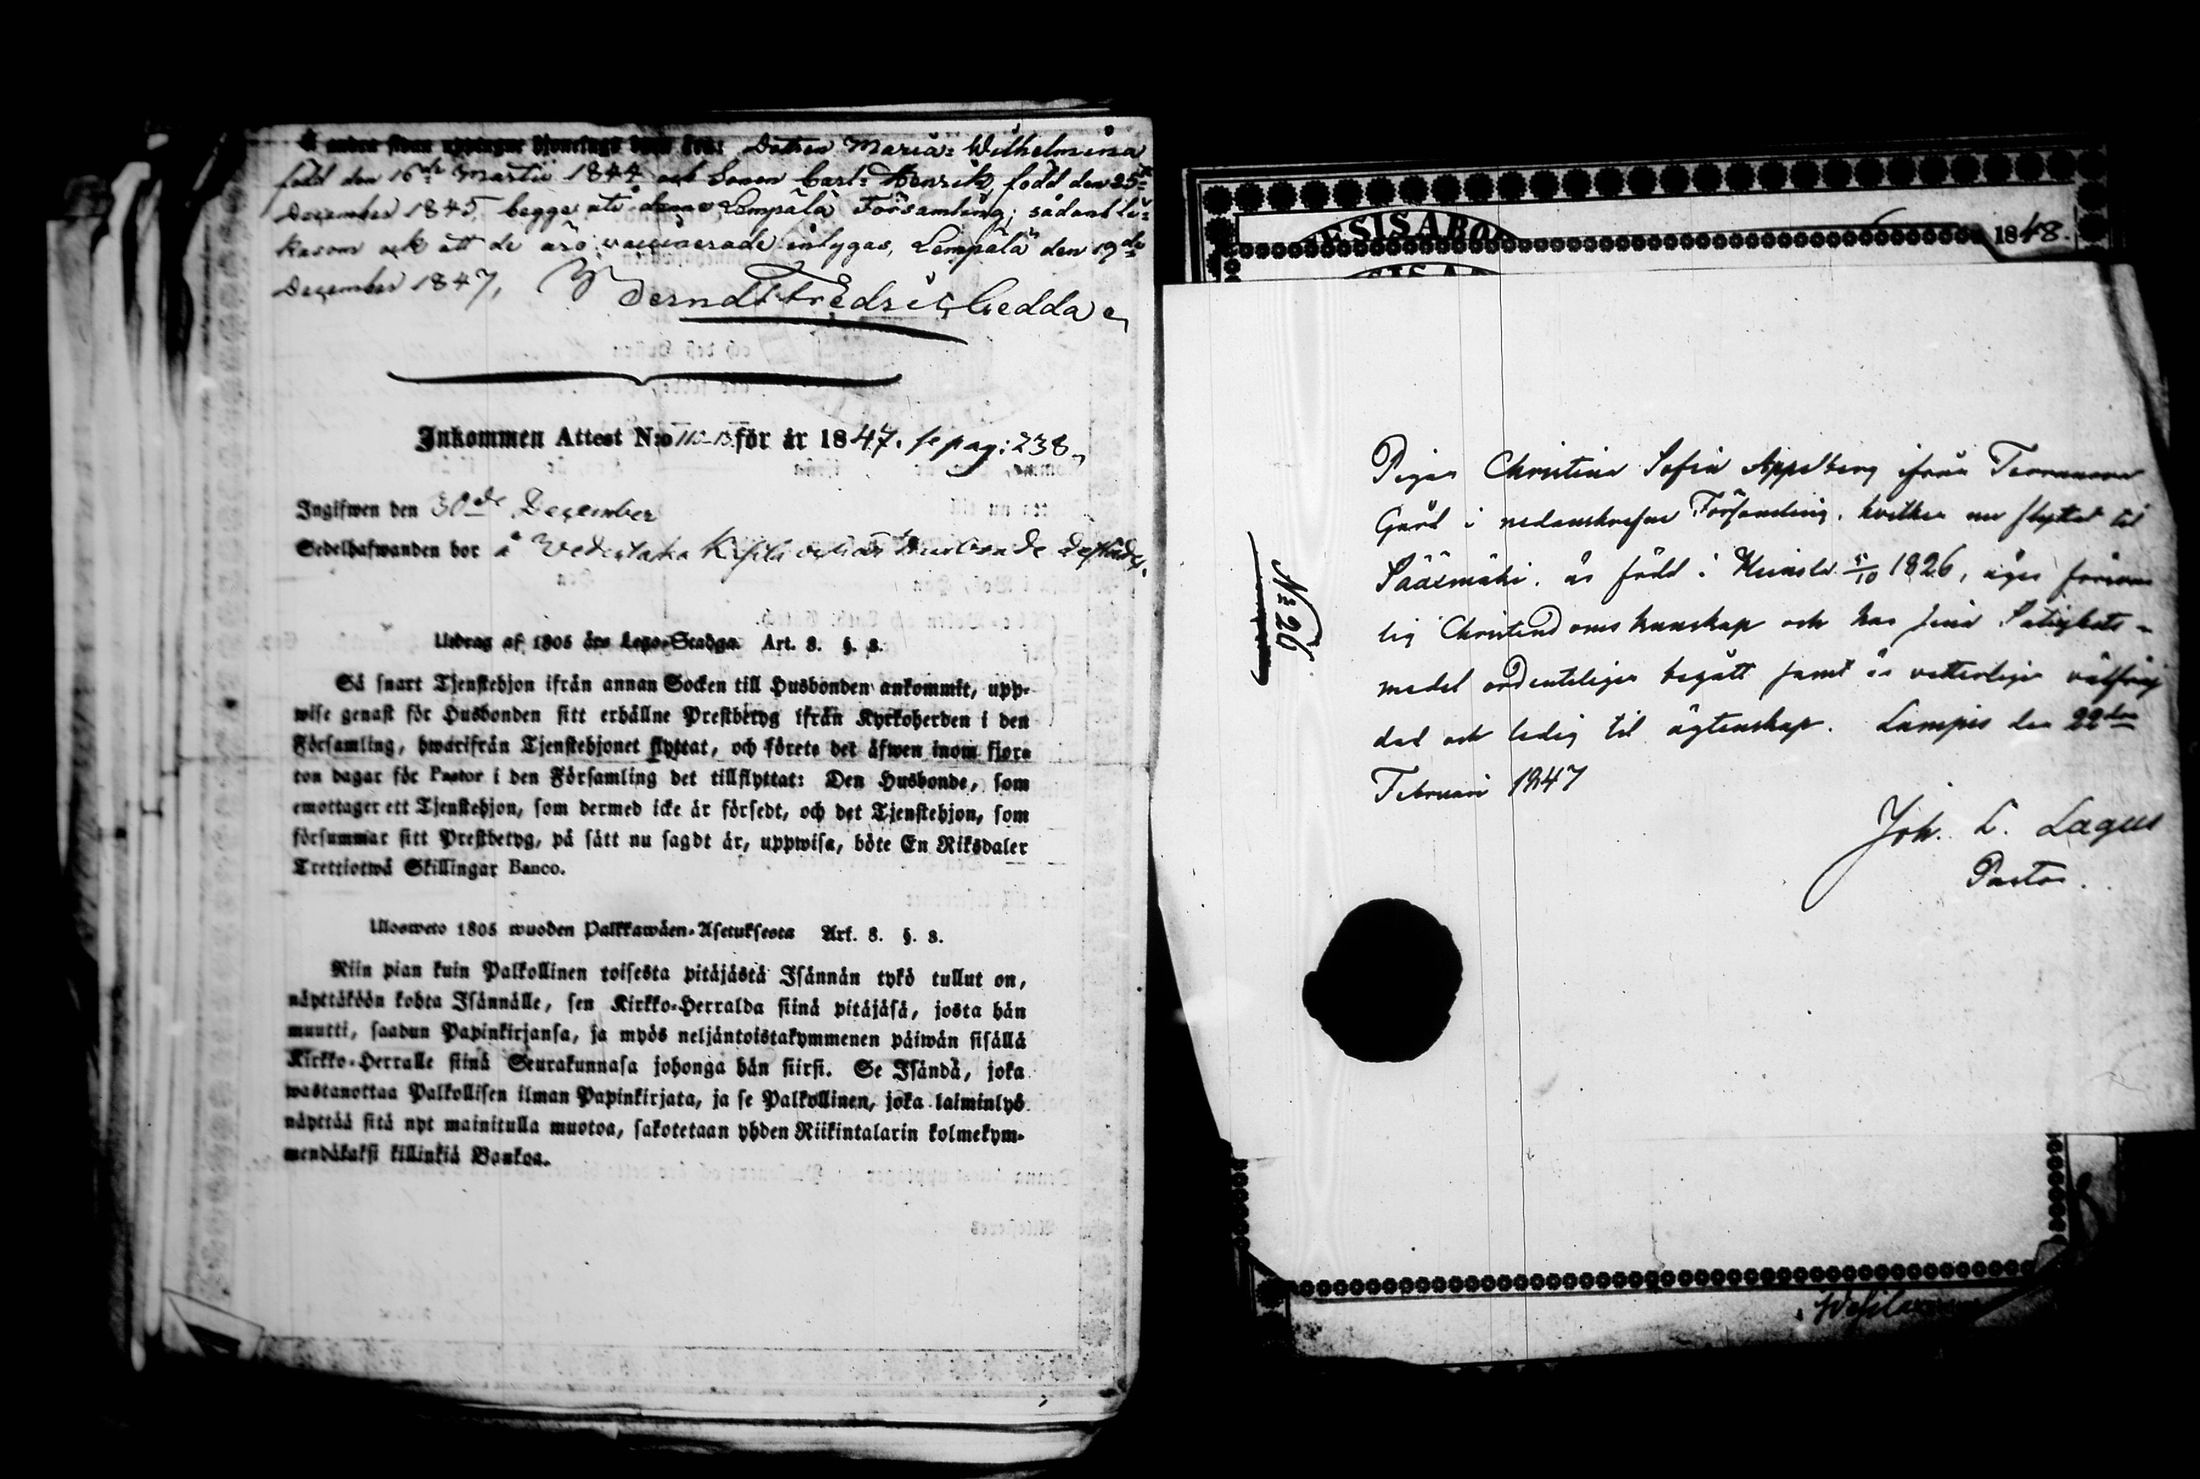 Å andra sidan upptagne hjonelags barn äro: Dotren Maria: Wilhelmina
född den 16de Martii 1844 och Sonen Carl: Henrik, född den 25te
December 1845, begge uti Lempälä Församling; sådant li:
kasom ock att de äro vaccinerade intygas, Lempälä den 19de
December 1847,
Berndt Fredric Gedda
Inkommen Attest N:o för år 1847. se pag: 238
Ingifwen den 30de December
Sedelhafwanden bor å
Utdrag af 1805 års Lego-Stadga. Art. 8. §. 8.
Så snart Tjenstehjon ifrån annan Socken till Husbonden ankommit, upp-
wise genast för Husbonden sitt erhållne Prestbetyg ifrån Kyrkoherden i den
Församling, hwarifrån Tjenstehjonet flyttat, och förete det äfwen inom fjor-
ton dagar för Pastor i den Församling det tillflyttat: Den Husbonde, som
emottager ett Tjenstehjon, som dermed icke är försedt, och det Tjenstehjon, som
försummar sitt Prestbetyg, på sätt nu sagdt är, uppwisa, böte En Riksdaler
Trettiotwå Skillingar Banco.
Ulosweto 1805 wuoden Palkkawäen-Asetuksesta Art. 8. §. 8.
Niin pian kuin Palkollinen toisesta pitäjästä Isännän tykö tullut on,
näyttäköön kohta Isännälle, sen Kirkko-Herralda siinä pitäjäsä, josta hän
muutti, saadun Papinkirjansa, ja myös neljäntoistakymmenen päiwän sisällä
Kirkko-Herralle siinä Seurakunnasa johonga hän siirsi. Se Isändä, joka
wastanottaa Palkollisen ilman Papinkirjata, ja se Palkollinen, joka laiminlyö
näyttää sitä nyt mainitulla muotoa, sakotetaan yhden Riikintalarin kolmekym-
mendäkaksi killinkiä Bankoa.
ESIS ABO
1848.
N:o 26
Pigan Christina Sofia Appelberg ifrån Terranova
Gård i nedanskrefne Församling, hvilken nu flyttat til
Sääxmäki, är född i Heinola 5/10 1826, äger försvar
lig Christendoms kunskap och har sina Salighets-
medel ordenteligen begått samt är vetterligen välfräg
dad och ledig til ägtenskap. Lampis den 22dra
Februari 1847
Joh. L. Lagus
Pastor.